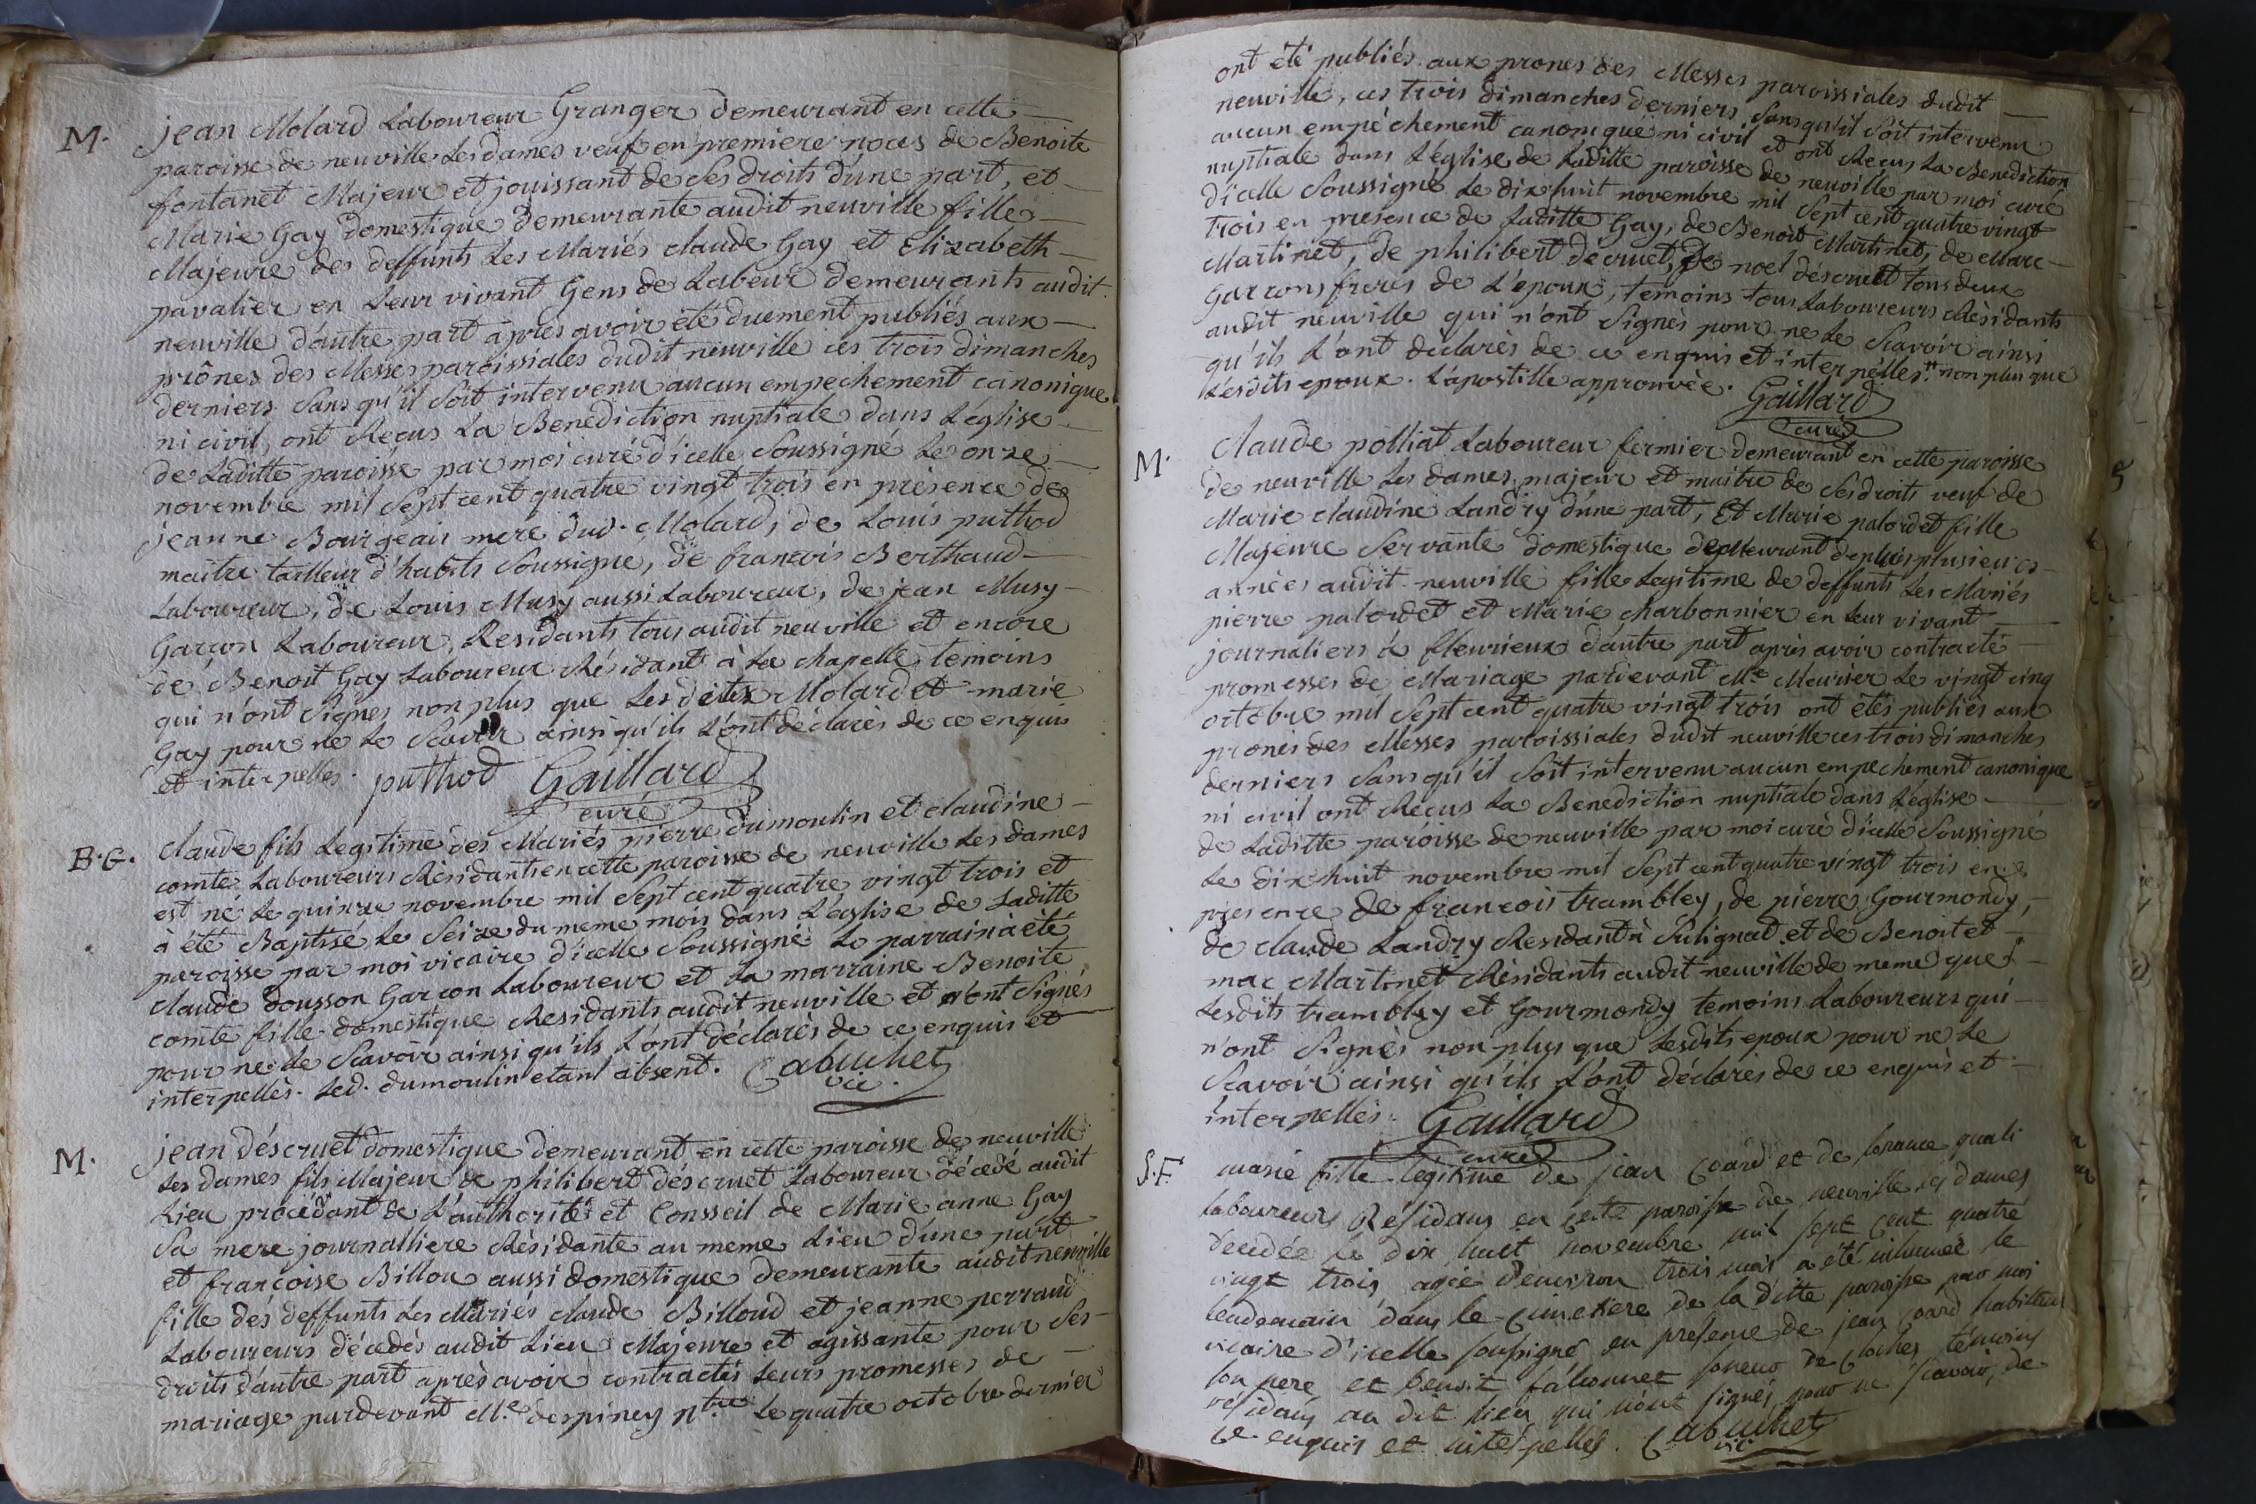 M. jean Molard Laboureur Granger demeurant en cette
paroisse de neuville Les dames veuf en premiere noces de Benoite
fontanet Majeur et jouissant de Ses droits d'une part, et
Marie Gay domestique demeurante audit neuville fille
Majeure des deffunts Les Mariés claude Gay et Elizabeth
pavalier en Leur vivant Gens de Labeur demeurants audit
neuville d'autre part après avoir été duement publiés aux
prônes des Messes paroissiales dudit neuville ces trois dimanches
derniers Sans qu'il Soit intervenu aucun empechement canonique
ni civil, ont Recus La Benediction nuptiale dans L'église
de Laditte paroisse par moi curé d'icelle Soussigné Le onze
novembre mil Sept cent quatre vingt trois en présence de
jeanne Bourgeais mere dud. Molard, de Louis puthod
maitre tailleur d'habits Soussigné, de francois Berthaud
Laboureur, de Louis Musy aussi Laboureur, de jean Musy
Garcon Laboureur, Residants tous audit neuville et encore
de Benoit Gay Laboureur Résidant à La chapelle temoins
qui n'ont Signes non plus que Les dites Molard et marie
Gay pour ne Le Scavoir ainsi qu'ils L'ont déclarés de ce enquis
et interpelles. puthod Gaillard
curé
B.G. claude fils Legitime des Mariés pierre dumoulin et claudine
comte Laboureurs Résidants en cette paroisse de neuville Les dames
est né Le quinze novembre mil Sept cent quatre vingt trois et
à été Baptisé Le Seize du meme mois dans L'église de Laditte
paroisse par moi vicaire d'icelle Soussigné Le parrain à été
claude dousson Garcon Laboureur et La marraine Benoite
comte fille domestique Residants audit neuville et n'ont Signés
pour ne Le Scavoir ainsi qu'ils L'ont déclarés de ce enquis et
interpellés. Led. dumoulin etant absent. Cabuchet
vic.
M. jean déscruet domestique demeurant en cette paroisse de neuville
Les dames fils Majeur de philibert déscruet Laboureur décedé audit
Lieu procédant de L'authorité et Consseil de Marie anne Gay
Sa mere journalliere Résidante au meme Lieu d'une part
et francoise Billou aussi domestique demeurante audit neuville
fille dés deffunts Les Mariés claude Billoud et jeanne perraud
Laboureurs décédés audit Lieu Majeure et agissante pour Ses
droits d'autre part après avoir contractés Leurs promesses de
mariage pardevant Me. despiney ntre. Le quatre octobre dernier
ont été publiés aux prones des Messes paroissiales dudit
neuville, ces trois dimanches derniers Sans qu'il Soit intervenu
aucun empéchement canonique ni civil et ont Recus La Benediction
nuptiale dans L'église de Laditte paroisse de neuville par moi curé
d'icelle Soussigné Le dix huit novembre mil Sept cent quatre vingt
trois en presence de Laditte Gay, de Benoit Martinet, de Marc
Martinet, de philibert décruet, de noel déscruet tous deux
Garcons freres de L'époux, temoins tous Laboureurs Résidants
audit neuville qui n'ont Signés pour ne Le Scavoir ainsi
qu'ils L'ont déclarés de ce enquis et interpélles. # non plus que
Lesdits epoux. L'apostille approuvée. Gaillard
curé
M. claude polliat Laboureur fermier demeurant en cette paroisse
de neuville Les dames, majeur et maitre de Ses droits veuf de
Marie claudine Landry d'une part, Et Marie palordet fille
Majeure Servante domestique demeurant depuis plusieurs
années audit neuville fille Legitime de deffunts Les Mariés
pierre palordet et Marie charbonnier en Leur vivant
journaliers à fleurieux d'autre part après avoir contracté
promesses de Mariage pardevant Me Meurier Le vingt cinq
octobre mil Sept cent quatre vingt trois ont étés publiés aux
prones des Messes paroissiales dudit neuville ces trois dimanches
derniers Sans qu'il Soit intervenu aucun empechement canonique
ni civil ont Recus La Benediction nuptiale dans L'église
de Laditte paroisse de neuville par moi curé d'icelle Soussigné
Le dix huit novembre mil Sept cent quatre vingt trois en
presence de francois trambley, de pierre Gourmondy,
de claude Landry Residant à Sulignat et de Benoit et
marc Martinet Résidants audit neuville de meme que
Lesdits trambley et Gourmondy temoins Laboureurs qui
n'ont Signés non plus que Lesdits epoux pour ne Le
Scavoir ainsi qu'ils L'ont déclarés de ce enquis et
interpellés. Gaillard
curé
S.F. marie fille legitime de jean Goard et de
laboureurs Résidans en cette paroisse de neuville les dames
decedée le dix huit novembre mil sept cent quatre
vingt trois agée d'environ trois mois a été inhumée le
lendemain dans le cimetiere de la ditte paroisse par moi
vicaire d'icelle soussigné en présence de jean Goard
son pere et benoit falconnet soneur de cloches témoins
résidans au dit lieu qui n'ont signés pour ne scavoir, de
ce enquis et interpellés. Cabuchet
vic.